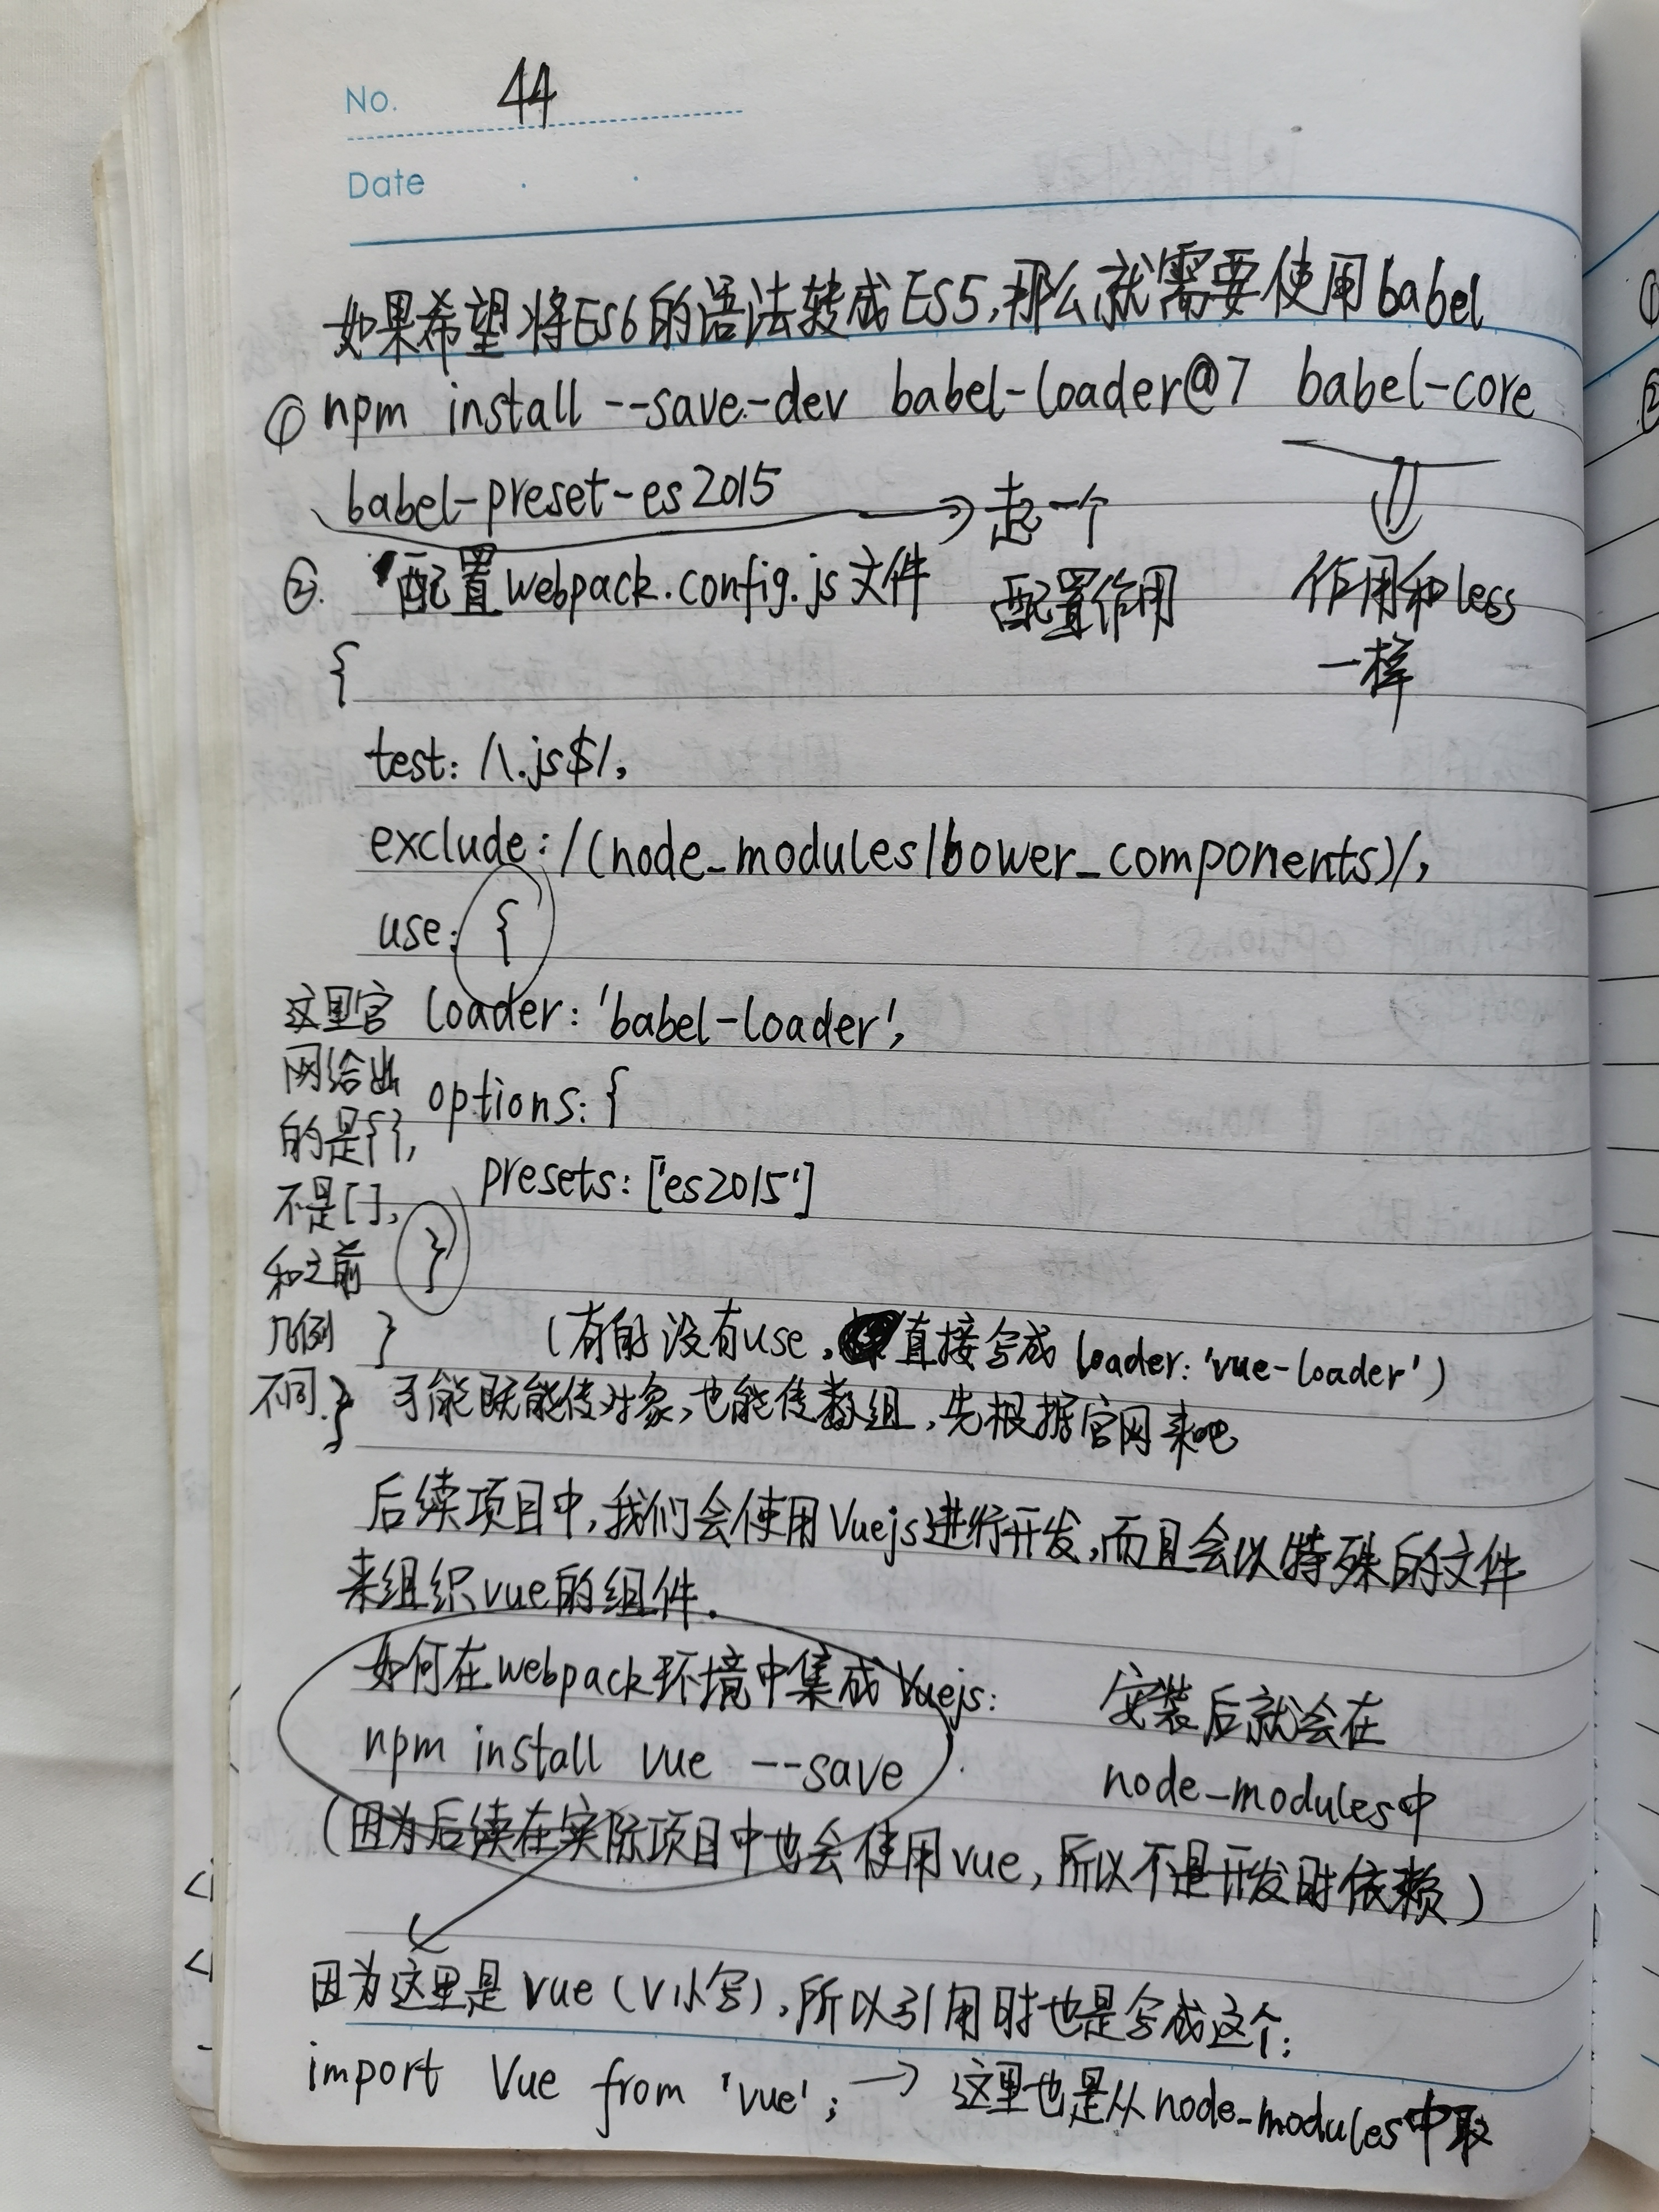 No. 44
Date
如果希望将ES6的语法转成ES5,那么就需要使用babel
① npm install --save-dev babel-loader@7 babel-core
babel-preset-es2015 → 起一个
配置作用
作用和less
一样
②. 配置webpack.config.js文件
{
test: /\.js$/,
exclude: /(node_modules|bower_components)/,
use: {
loader: 'babel-loader',
options: {
presets: ['es2015']
}
}
}
这里官
网给出
的是{},
不是[],
和之前
几例
不同.
(有的没有use, 直接写成 loader: 'vue-loader')
可能既能传对象,也能传数组,先根据官网来吧
后续项目中,我们会使用Vuejs进行开发,而且会以特殊的文件
来组织vue的组件.
如何在webpack环境中集成Vuejs:
npm install vue --save
安装后就会在
node_modules中
(因为后续在实际项目中也会使用vue,所以不是开发时依赖)
因为这里是vue(V小写),所以引用时也是写成这个:
import Vue from 'vue'; → 这里也是从node_modules中取